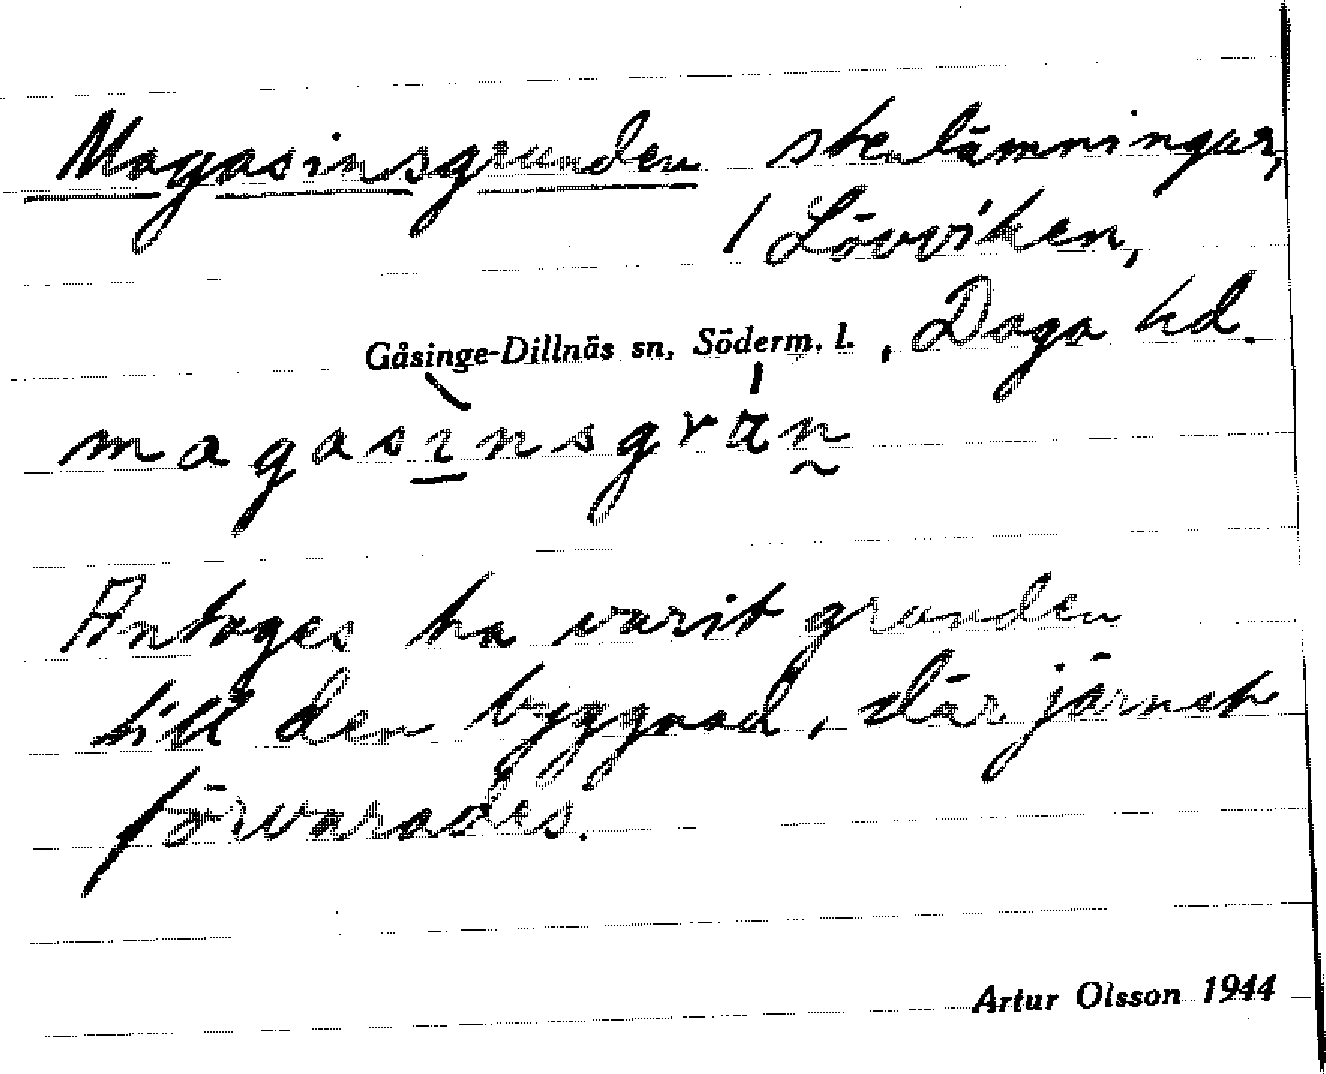 Magasinsgrunden stenlämningar,
/ Lövviken,
Gåsinge-Dillnäs sn, Söderm. l. , Daga hd.
magasinsgrän
Antages ha varit grunden
till den byggnad, där järnet
förvarades.
Artur Olsson 1944